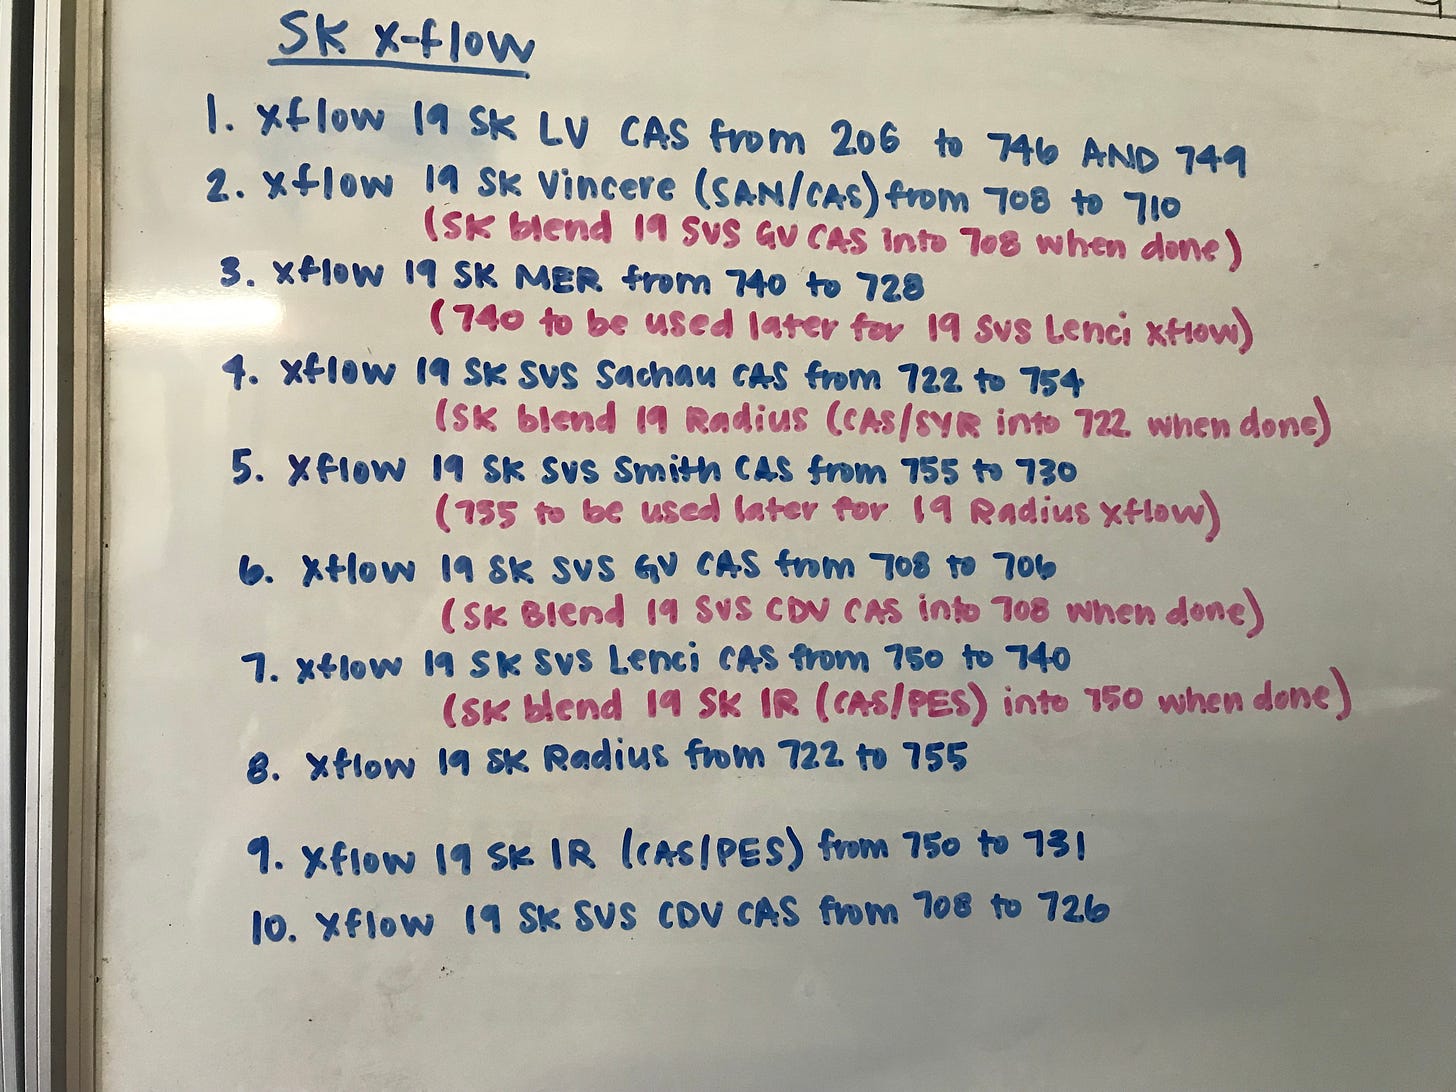 SK x-flow
1. xflow 19 SK LV CAS from 206 to 746 AND 749
2. xflow 19 SK Vincere (SAN/CAS) from 708 to 710
(SK blend 19 SVS GV CAS into 708 when done)
3. xflow 19 SK MER from 740 to 728
(740 to be used later for 19 SVS Lenci xflow)
4. xflow 19 SK SVS Sachau CAS from 722 to 754
(SK blend 19 Radius (CAS/SYR into 722 when done)
5. xflow 19 SK SVS Smith CAS from 755 to 730
(755 to be used later for 19 Radius xflow)
6. xflow 19 SK SVS GV CAS from 708 to 706
(SK Blend 19 SVS CDV CAS into 708 when done)
7. xflow 19 SK SVS Lenci CAS from 750 to 740
(SK blend 19 SK IR (CAS/PES) into 750 when done)
8. xflow 19 SK Radius from 722 to 755
9. xflow 19 SK IR (CAS/PES) from 750 to 731
10. xflow 19 SK SVS CDV CAS from 708 to 726